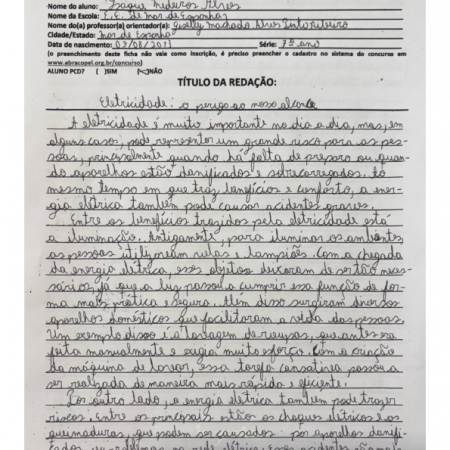 Nome do aluno: Isaque Medeiros Alves
Nome da Escola: E.E. de Mar de Espanha
Nome do(a) professor(a) orientador(a): Giselly Machado Alves
Cidade/Estado: Mar de Espanha
Data de nascimento: Série: 7º ano
(o preenchimento desta ficha não vale como inscrição, é preciso preencher o cadastro no sistema do concurso em
www.abracopel.org.br/concurso)
ALUNO PCD? ( )SIM (X)NÃO
TÍTULO DA REDAÇÃO:
Eletricidade: o perigo ao nosso alcance
A eletricidade é muito importante no dia a dia, mas, em
alguns casos, pode representar um grande risco para as pes-
soas, principalmente quando há falta de preparo ou quan-
do aparelhos estão danificados e sobrecarregados. Ao
mesmo tempo em que traz benefícios e conforto, a ener-
gia elétrica também pode causar acidentes graves.
Entre os benefícios trazidos pela eletricidade está
a iluminação. Antigamente, para iluminar os ambientes,
as pessoas utilizavam velas e lampiões. Com a chegada
da energia elétrica, esses objetos deixaram de ser tão neces-
sários, já que a luz passou a cumprir essa função de for-
ma mais prática e segura. Além disso surgiram diversos
aparelhos domésticos que facilitaram a vida das pessoas.
Um exemplo disso é a lavagem de roupas, que antes era
feita manualmente e exigia muito esforço. Com a criação
da máquina de lavar, essa tarefa cansativa passou a
ser realizada de maneira mais rápida e eficiente.
Por outro lado, a energia elétrica também pode trazer
riscos. Entre os principais estão os choques elétricos e as
queimaduras, que podem ser causados por aparelhos danifi-
cados ou problemas na rede elétrica. Esses acidentes